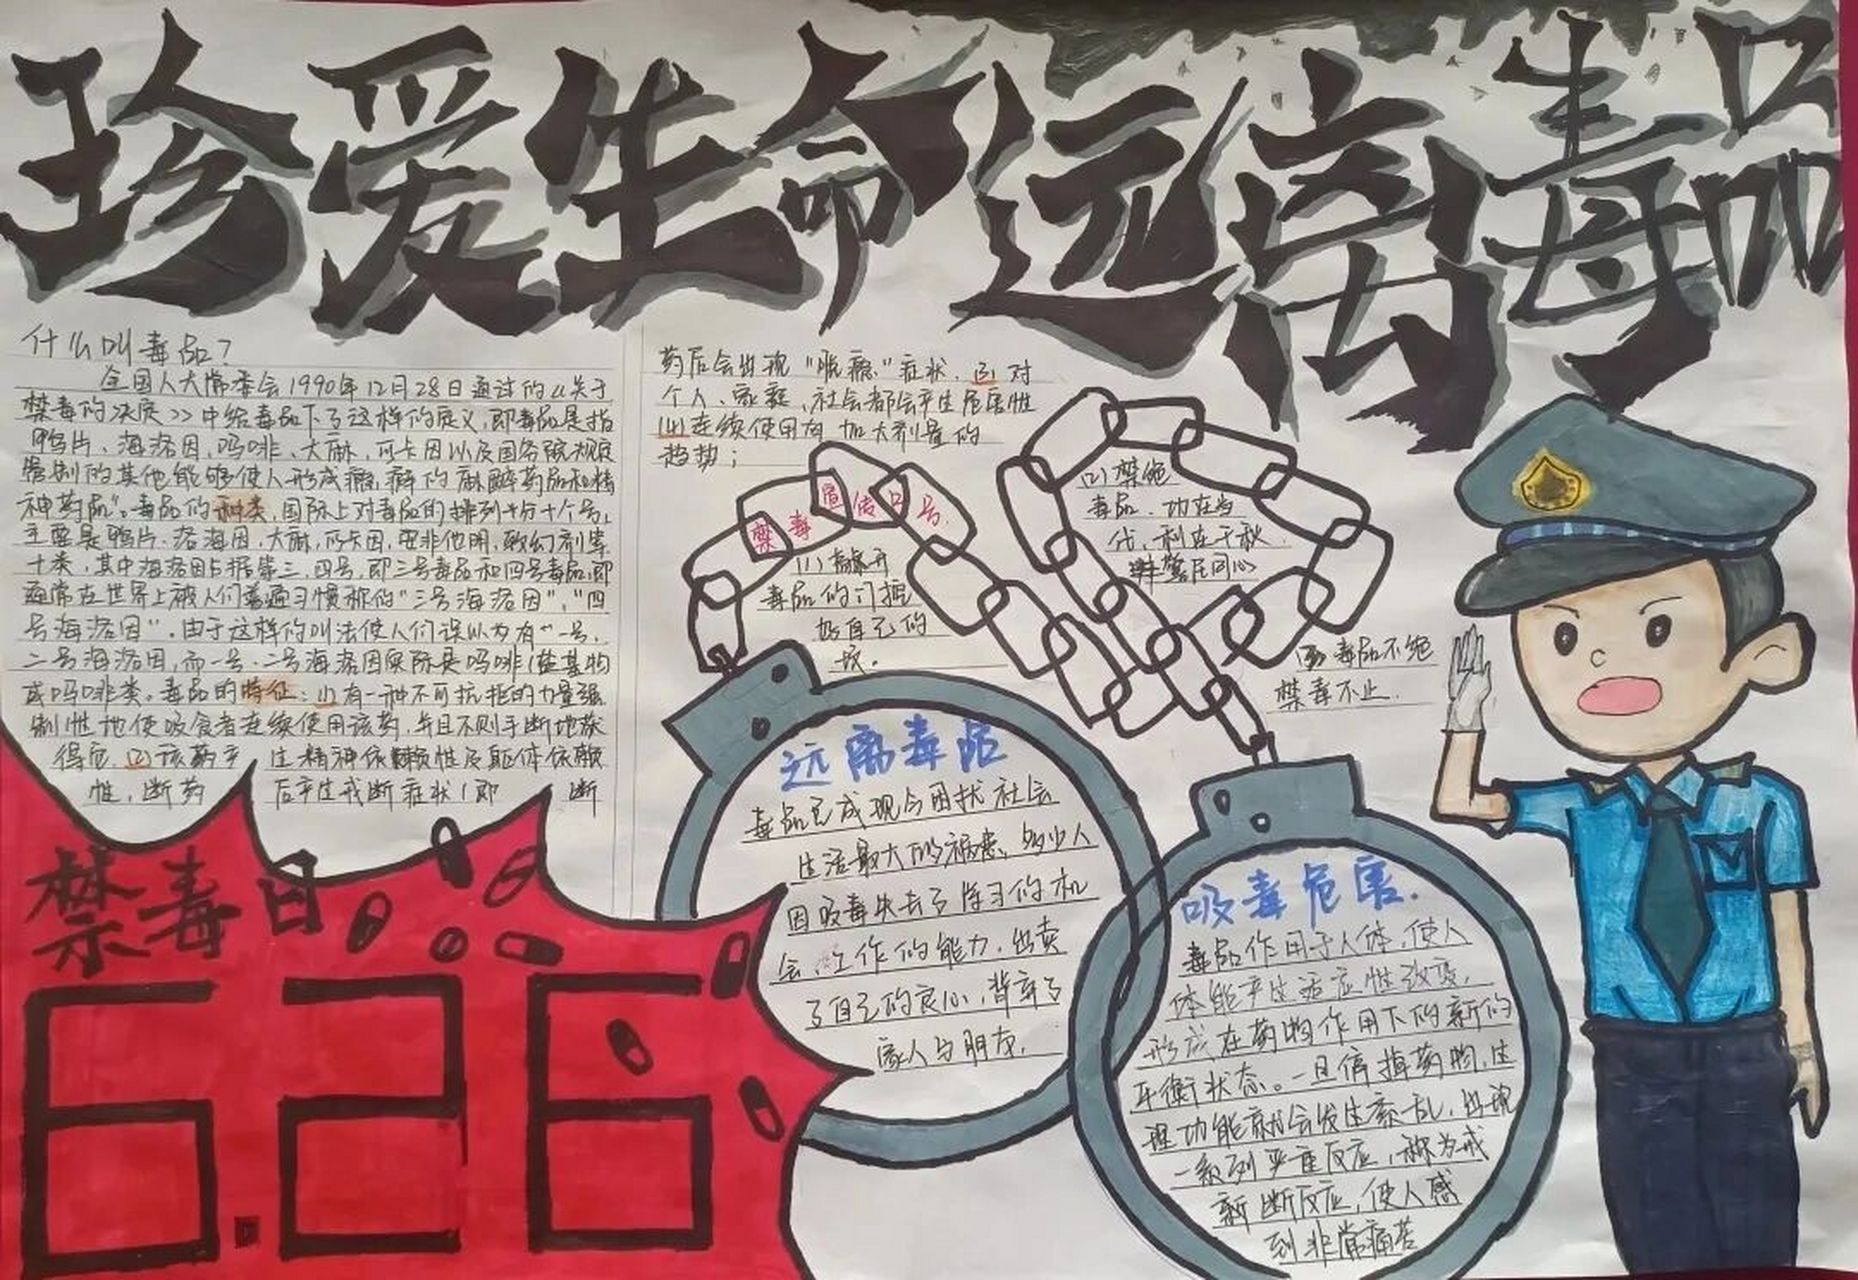 珍爱生命远离毒品
什么叫毒品?
全国人大常委会1990年12月28日通过的《关于
禁毒的决定》中给毒品下了这样的定义,即毒品是指
鸦片、海洛因、吗啡、大麻、可卡因以及国务院规定
管制的其他能够使人形成瘾癖的麻醉药品和精
神药品"。毒品的种类,国际上对毒品的排列十分十个号,
主要是鸦片、洛海因、大麻、可卡因、安非他明、致幻剂等
十类,其中海洛因占据第三、四号,即三号毒品和四号毒品,即
通常在世界上被人们普遍习惯称的"三号海洛因","四
号海洛因",由于这样的叫法使人们误以为有"一号,
二号海洛因,而一号、二号海洛因实际是吗啡(盐基物
或吗啡类。毒品的特征:(1)有一种不可抗拒的力量强
制性地使吸食者连续使用该药,并且不则手断地获
得它,(2)该药产生精神依赖性及躯体依赖
性,断药后产生戒断症状(即断
药后会出现"脱瘾"症状,(3)对
个人、家庭、社会都会产生危害性
(4)连续使用有加大剂量的
趋势;
禁毒宣传口号
(1)离开
毒品的门把
好自己的
(2)禁绝
毒品,功在当
代,利在千秋
警民同心
(3)毒品不绝
禁毒不止.
远离毒品
毒品已成现今困扰社会
生活最大的祸患,多少人
因吸毒失去了学习的机
会,工作的能力,出卖
了自己的良心,背弃了
家人与朋友.
吸毒危害.
毒品作用于人体,使人
体能产生适应性改变,
形成在药物作用下的新的
平衡状态。一旦停掉药物,生
理功能就会发生紊乱,出现
一系列严重反应,称为戒
断反应,使人感
到非常痛苦
禁毒日
6.26